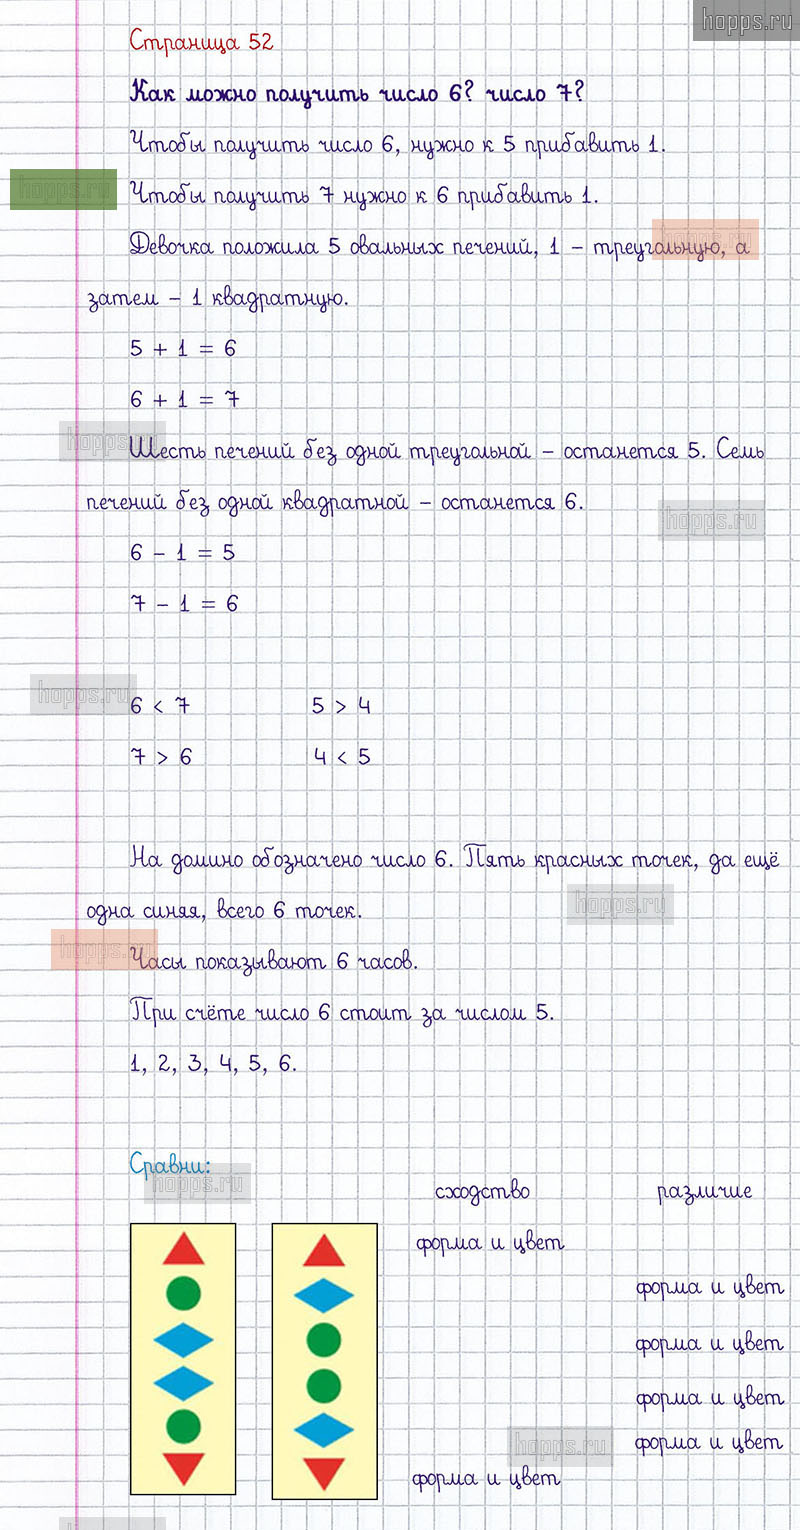 hopps.ru
Страница 52
Как можно получить число 6? число 7?
Чтобы получить число 6, нужно к 5 прибавить 1.
hopps.ru
Чтобы получить 7 нужно к 6 прибавить 1.
hopps.ru
Девочка положила 5 овальных печений, 1 – треугольную, а
затем – 1 квадратную.
5 + 1 = 6
6 + 1 = 7
hopps.ru
Шесть печений без одной треугольной – останется 5. Семь
печений без одной квадратной – останется 6.
hopps.ru
6 – 1 = 5
7 – 1 = 6
hopps.ru
6 < 7 5 > 4
7 > 6 4 < 5
На домино обозначено число 6. Пять красных точек, да ещё
одна синяя, всего 6 точек.
hopps.ru
hopps.ru
Часы показывают 6 часов.
При счёте число 6 стоит за числом 5.
1, 2, 3, 4, 5, 6.
Сравни:
hopps.ru
сходство различие
форма и цвет
форма и цвет
форма и цвет
форма и цвет
форма и цвет
hopps.ru
форма и цвет